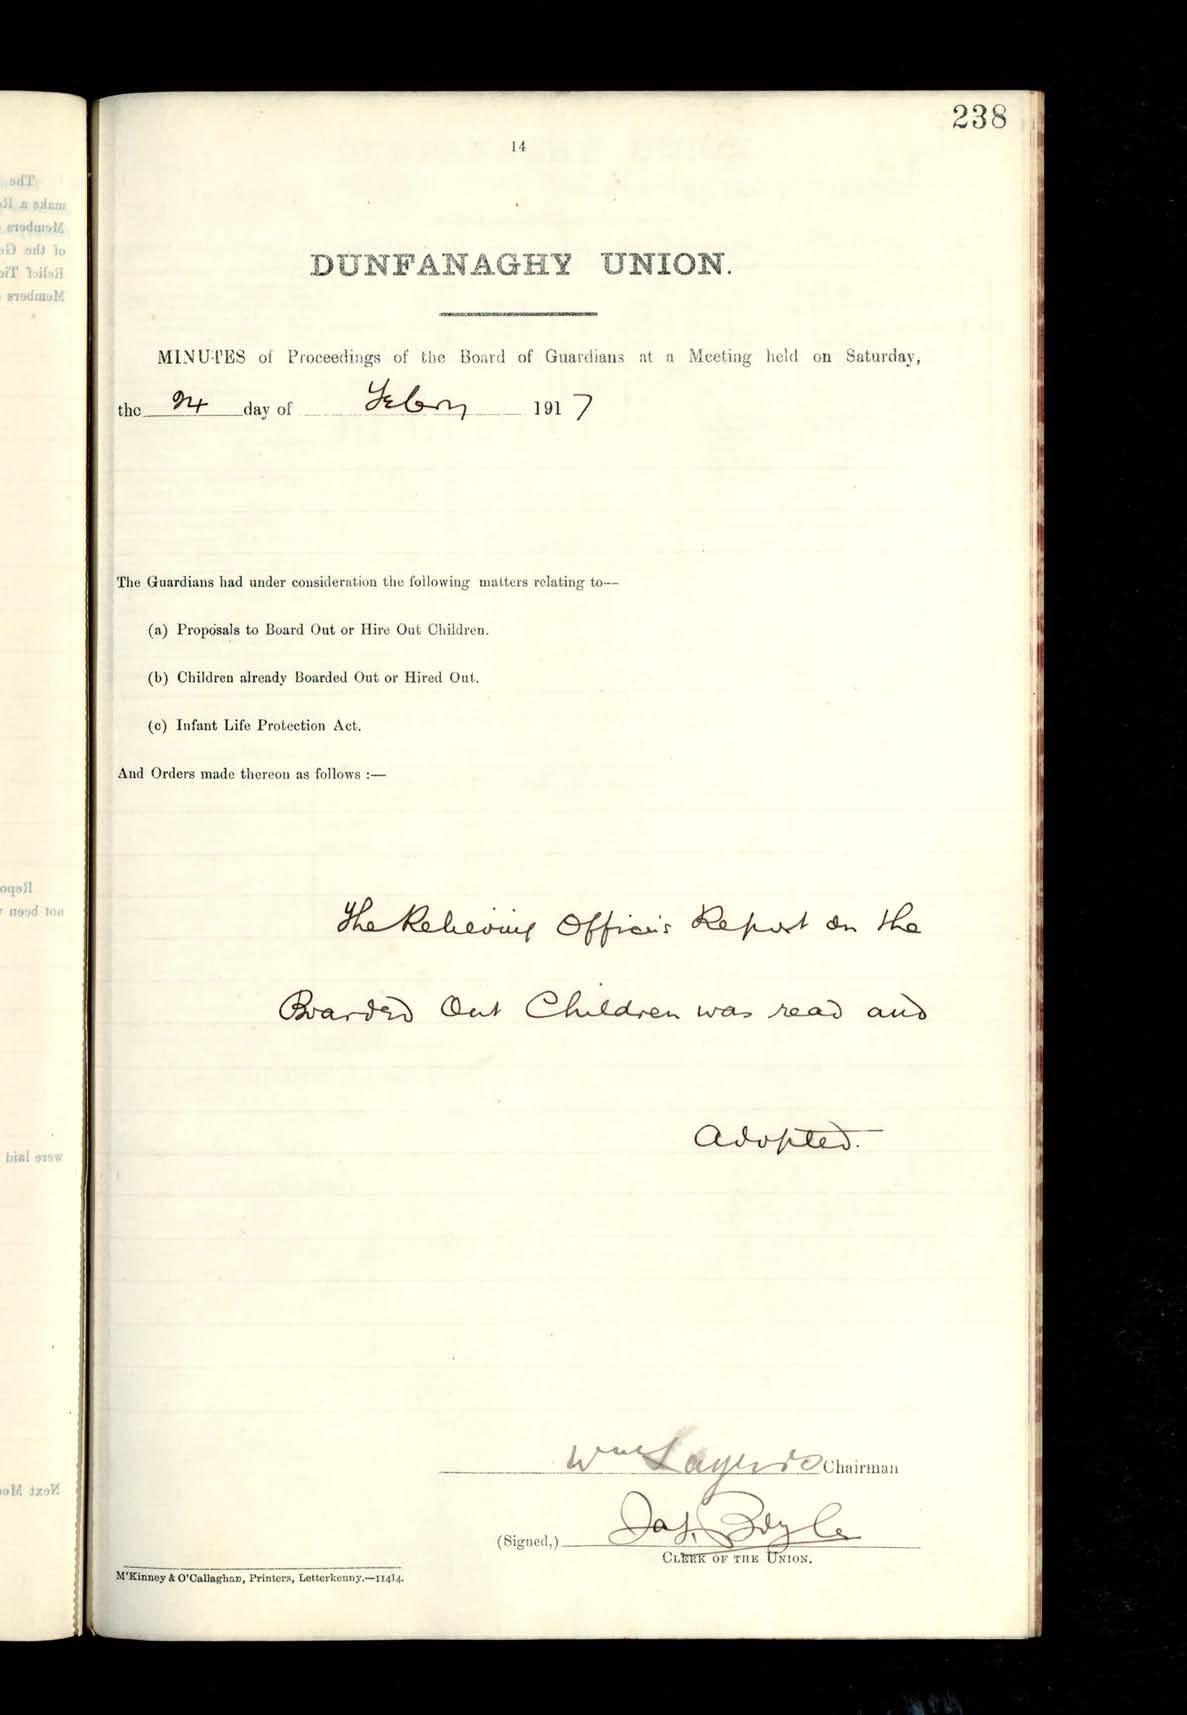 238
14
DUNFANAGHY UNION.
MINUTES of Proceedings of the Board of Guardians at a Meeting held on Saturday,
the 24 day of Febry 1917
The Guardians had under consideration the following matters relating to—
(a) Proposals to Board Out or Hire Out Children.
(b) Children already Boarded Out or Hired Out.
(c) Infant Life Protection Act.
And Orders made thereon as follows :—
The Relieving Officer's Report on the
Boarded Out Children was read and
Adopted.
Wm Chairman
(Signed,) Jas. Boyle
CLERK OF THE UNION.
M'Kinney & O'Callaghan, Printers, Letterkenny.—11414.